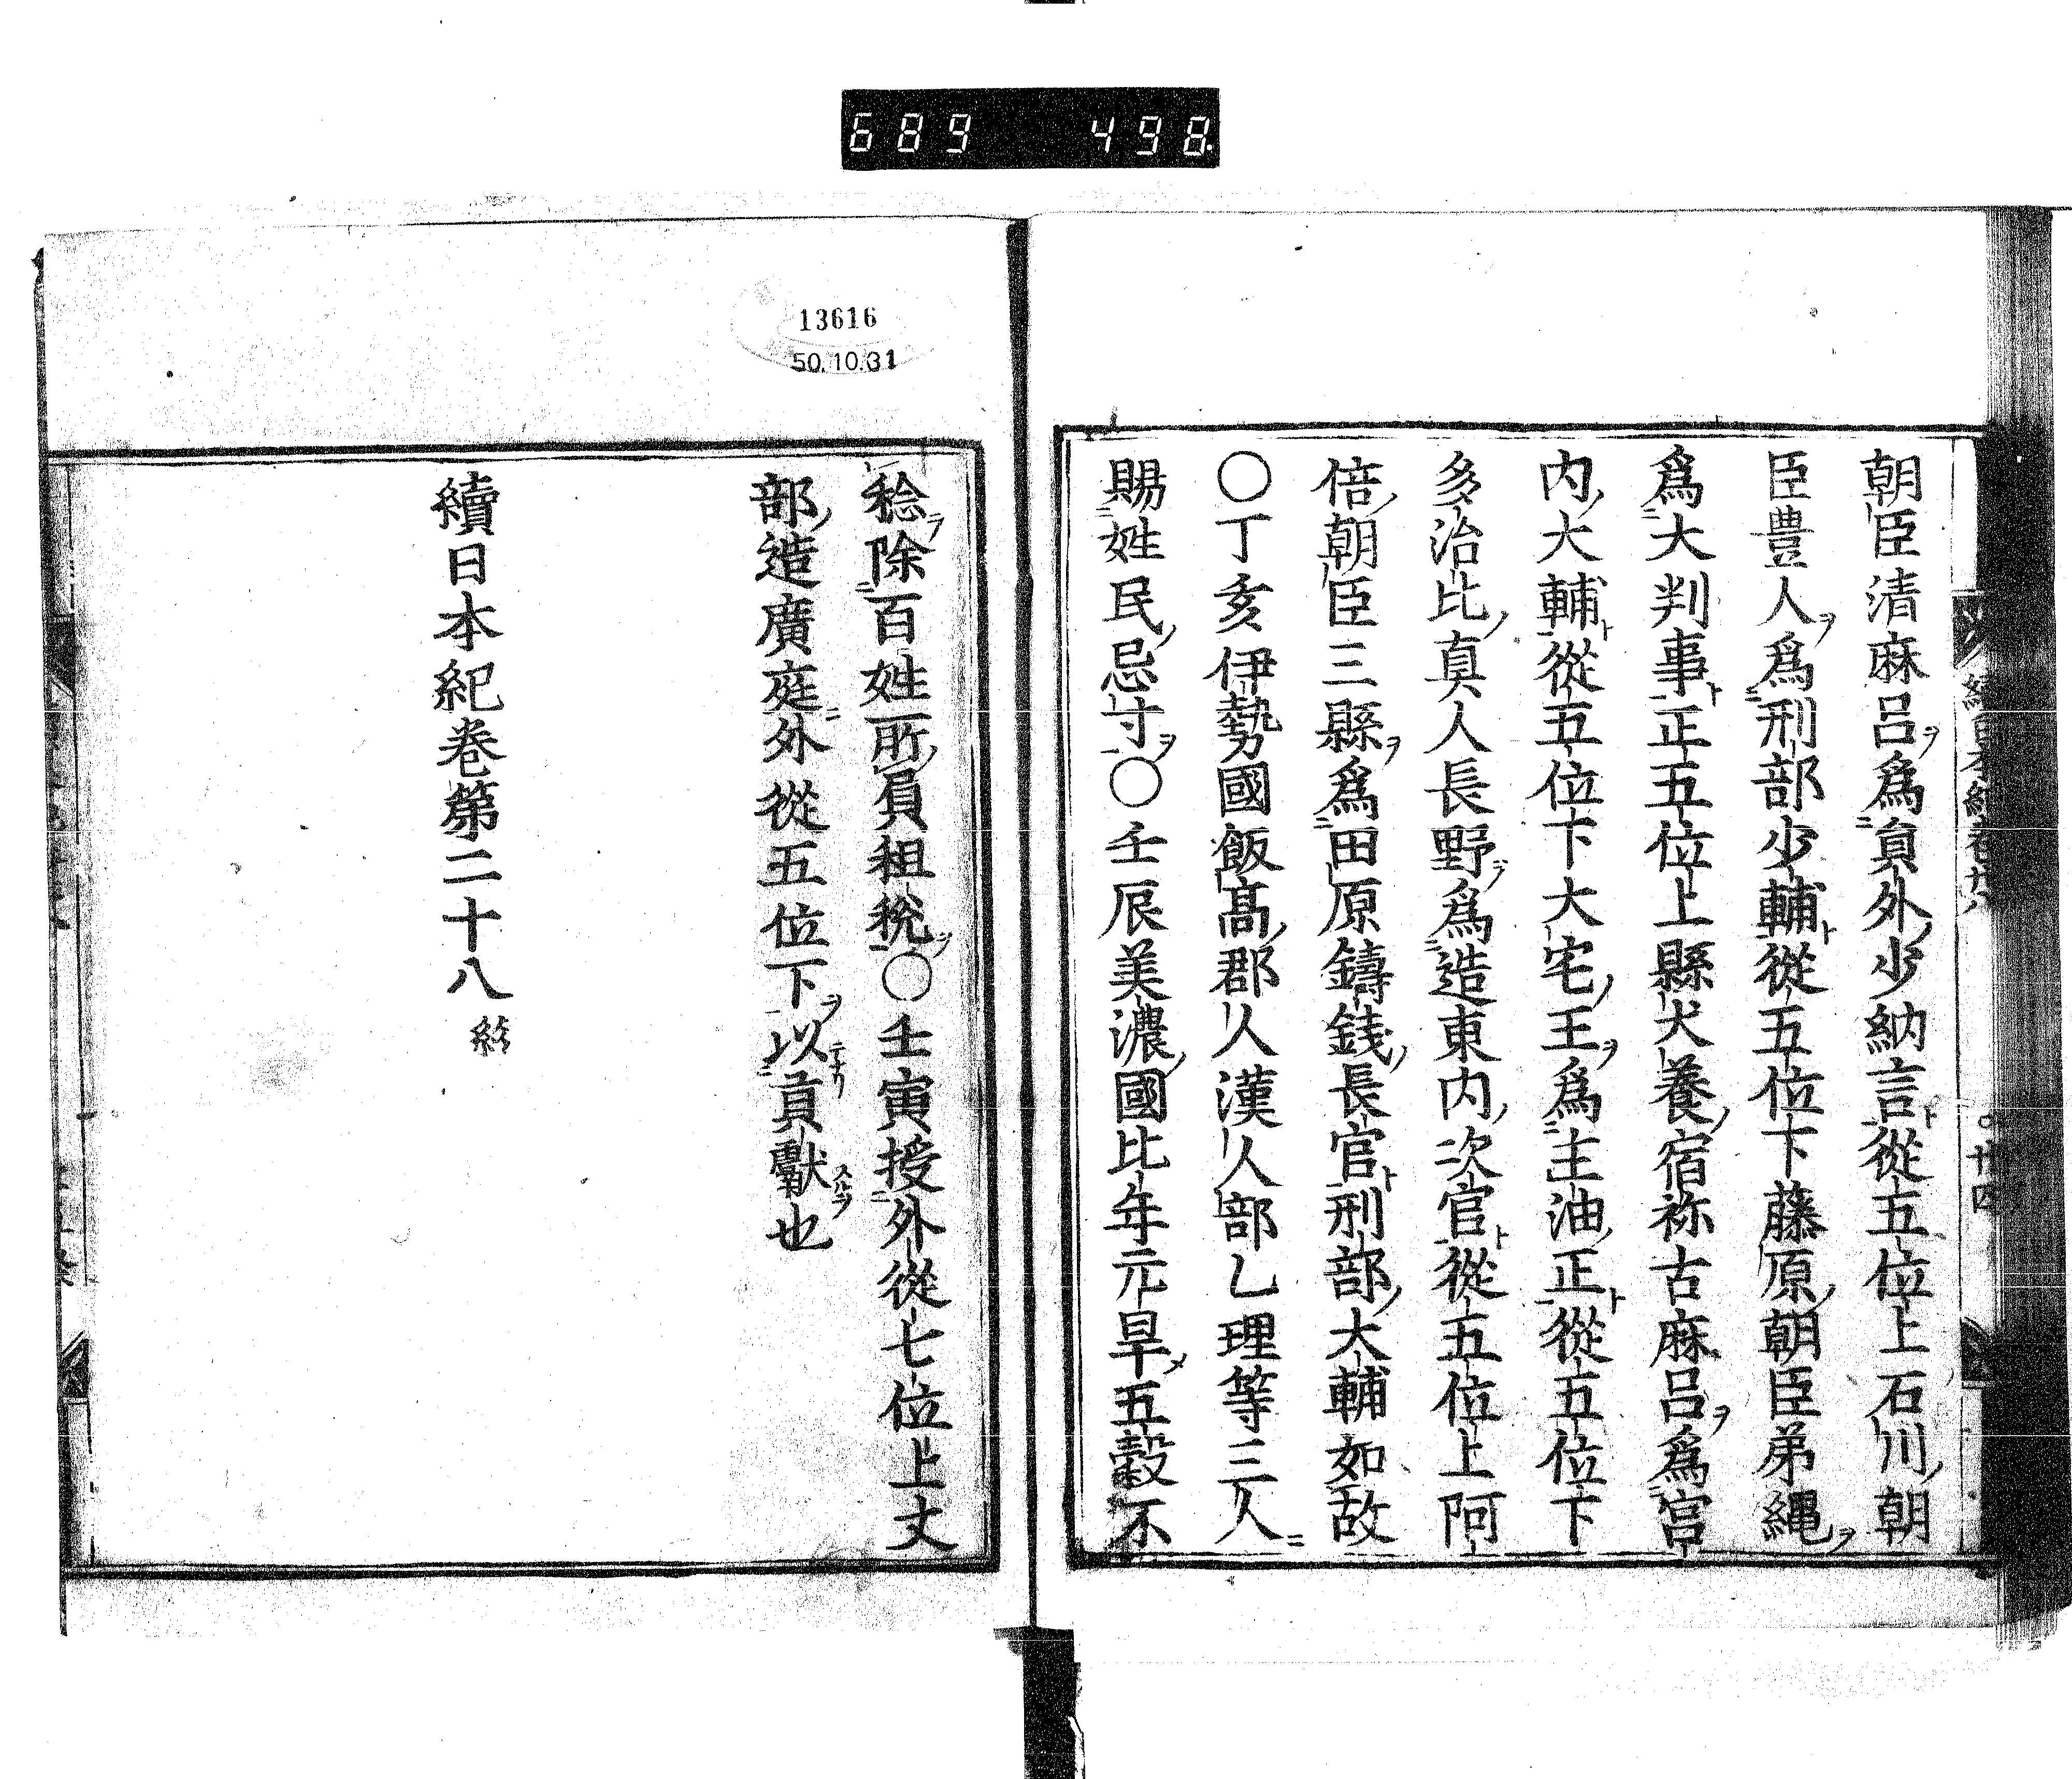 689 498
朝臣清麻呂爲員外少納言從五位上石川朝
臣豊人爲刑部少輔從五位下藤原朝臣弟縄
爲大判事正五位上縣犬養宿祢古麻呂爲宮
内大輔從五位下大宅王爲主油正從五位下
多治比真人長野爲造東内次官從五位上阿
倍朝臣三縣爲田原鑄錢長官刑部大輔如故
○丁亥伊勢國飯高郡人漢人部乙理等三人
賜姓民忌寸○壬辰美濃國比年亢旱五穀不
13616
50.10.31
稔除百姓所負租税○壬寅授外從七位上丈
部造廣庭外從五位下以貢獻也
續日本紀巻第二十八終